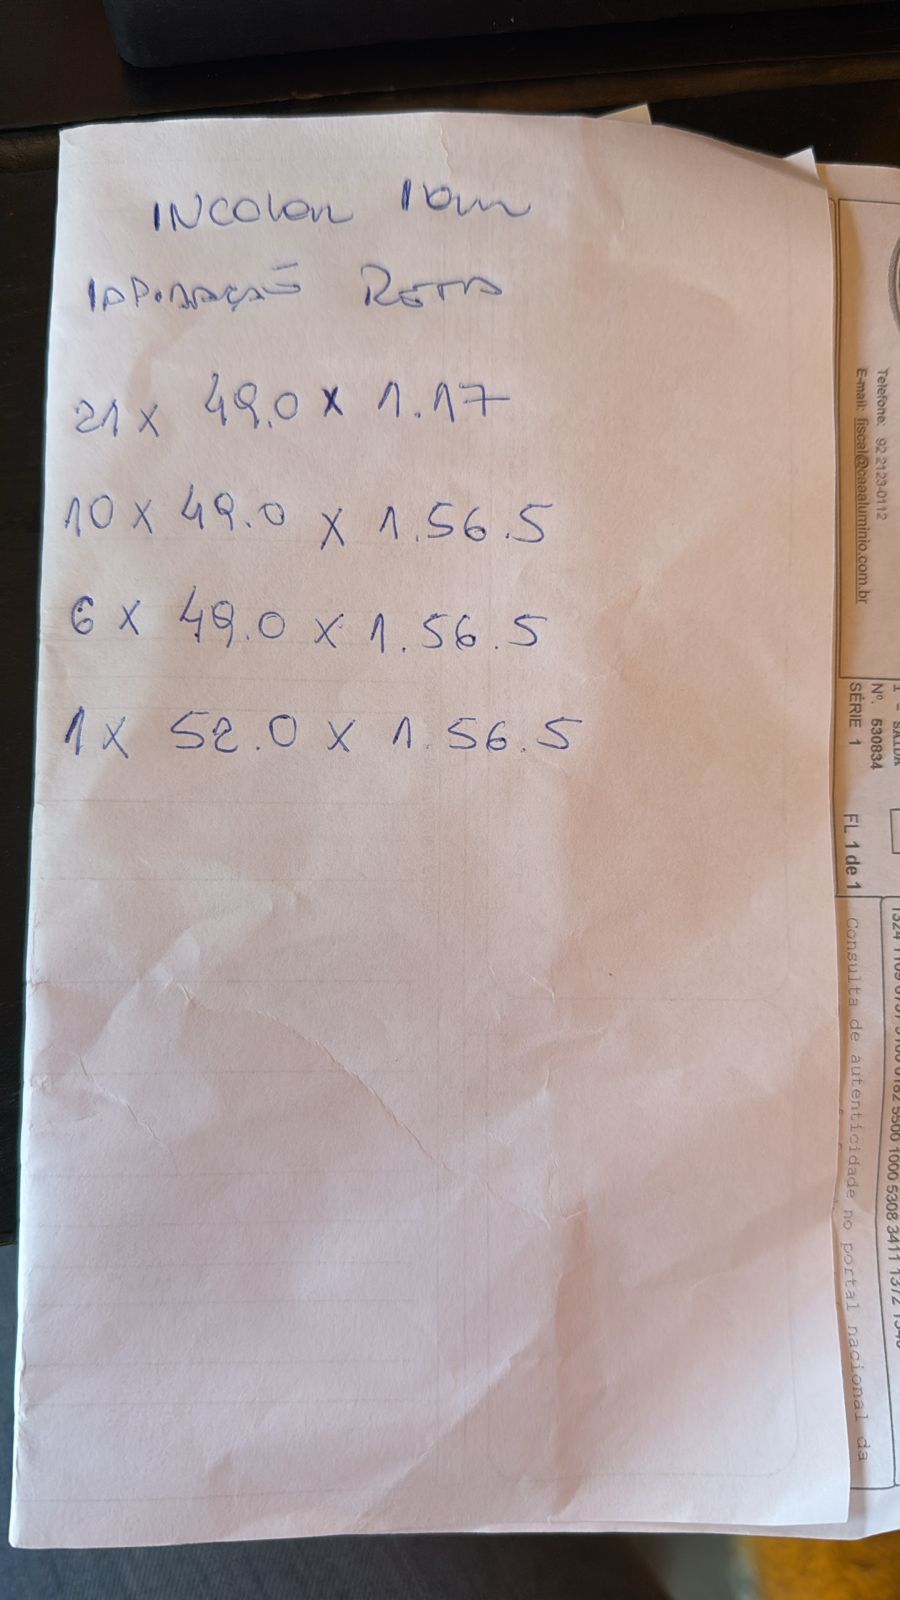 INcolor 10mm
LAPIDAÇÃO RETA
21 x 49.0 x 1.17
10 x 49.0 x 1.56.5
6 x 49.0 x 1.56.5
1 x 52.0 x 1.56.5
Telefone: 92 2123-0112
E-mail: fiscal@caaaluminio.com.br
1 - SAÍDA
Nº. 530834
SÉRIE 1 FL 1 de 1
5500 1000 5308 3411 1372
Consulta de autenticidade no portal nacional da